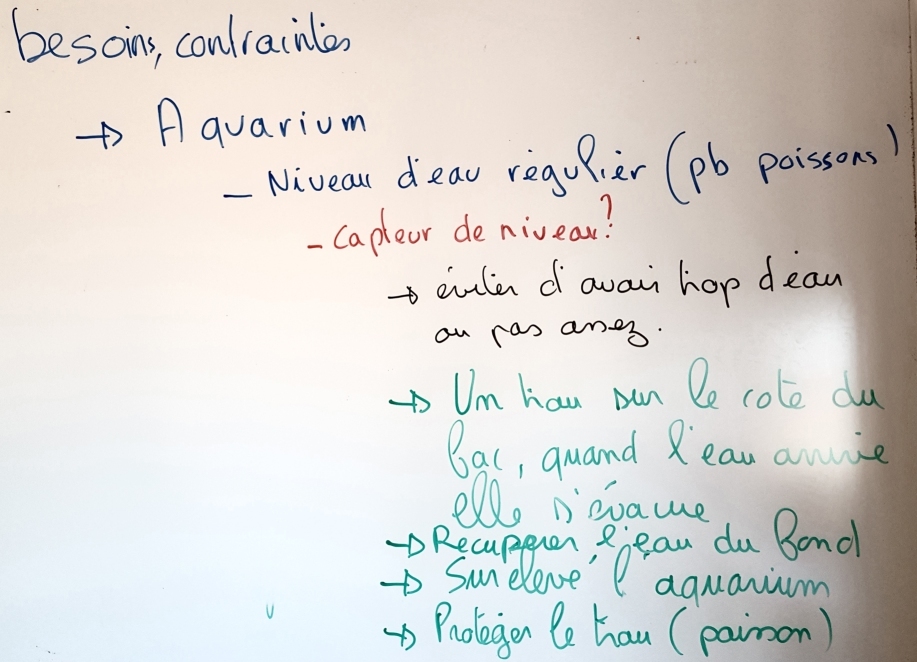 besoins, contraintes
→ Aquarium
- Niveau d'eau régulier (pb poissons)
- Capteur de niveau?
→ éviter d'avoir trop d'eau
ou pas assez.
→ Un trou sur le coté du
bac, quand l'eau arrive
elle s'évacue
→ Recuperer l'eau du fond
→ Sureleve l'aquarium
→ Protéger le trou (poisson)